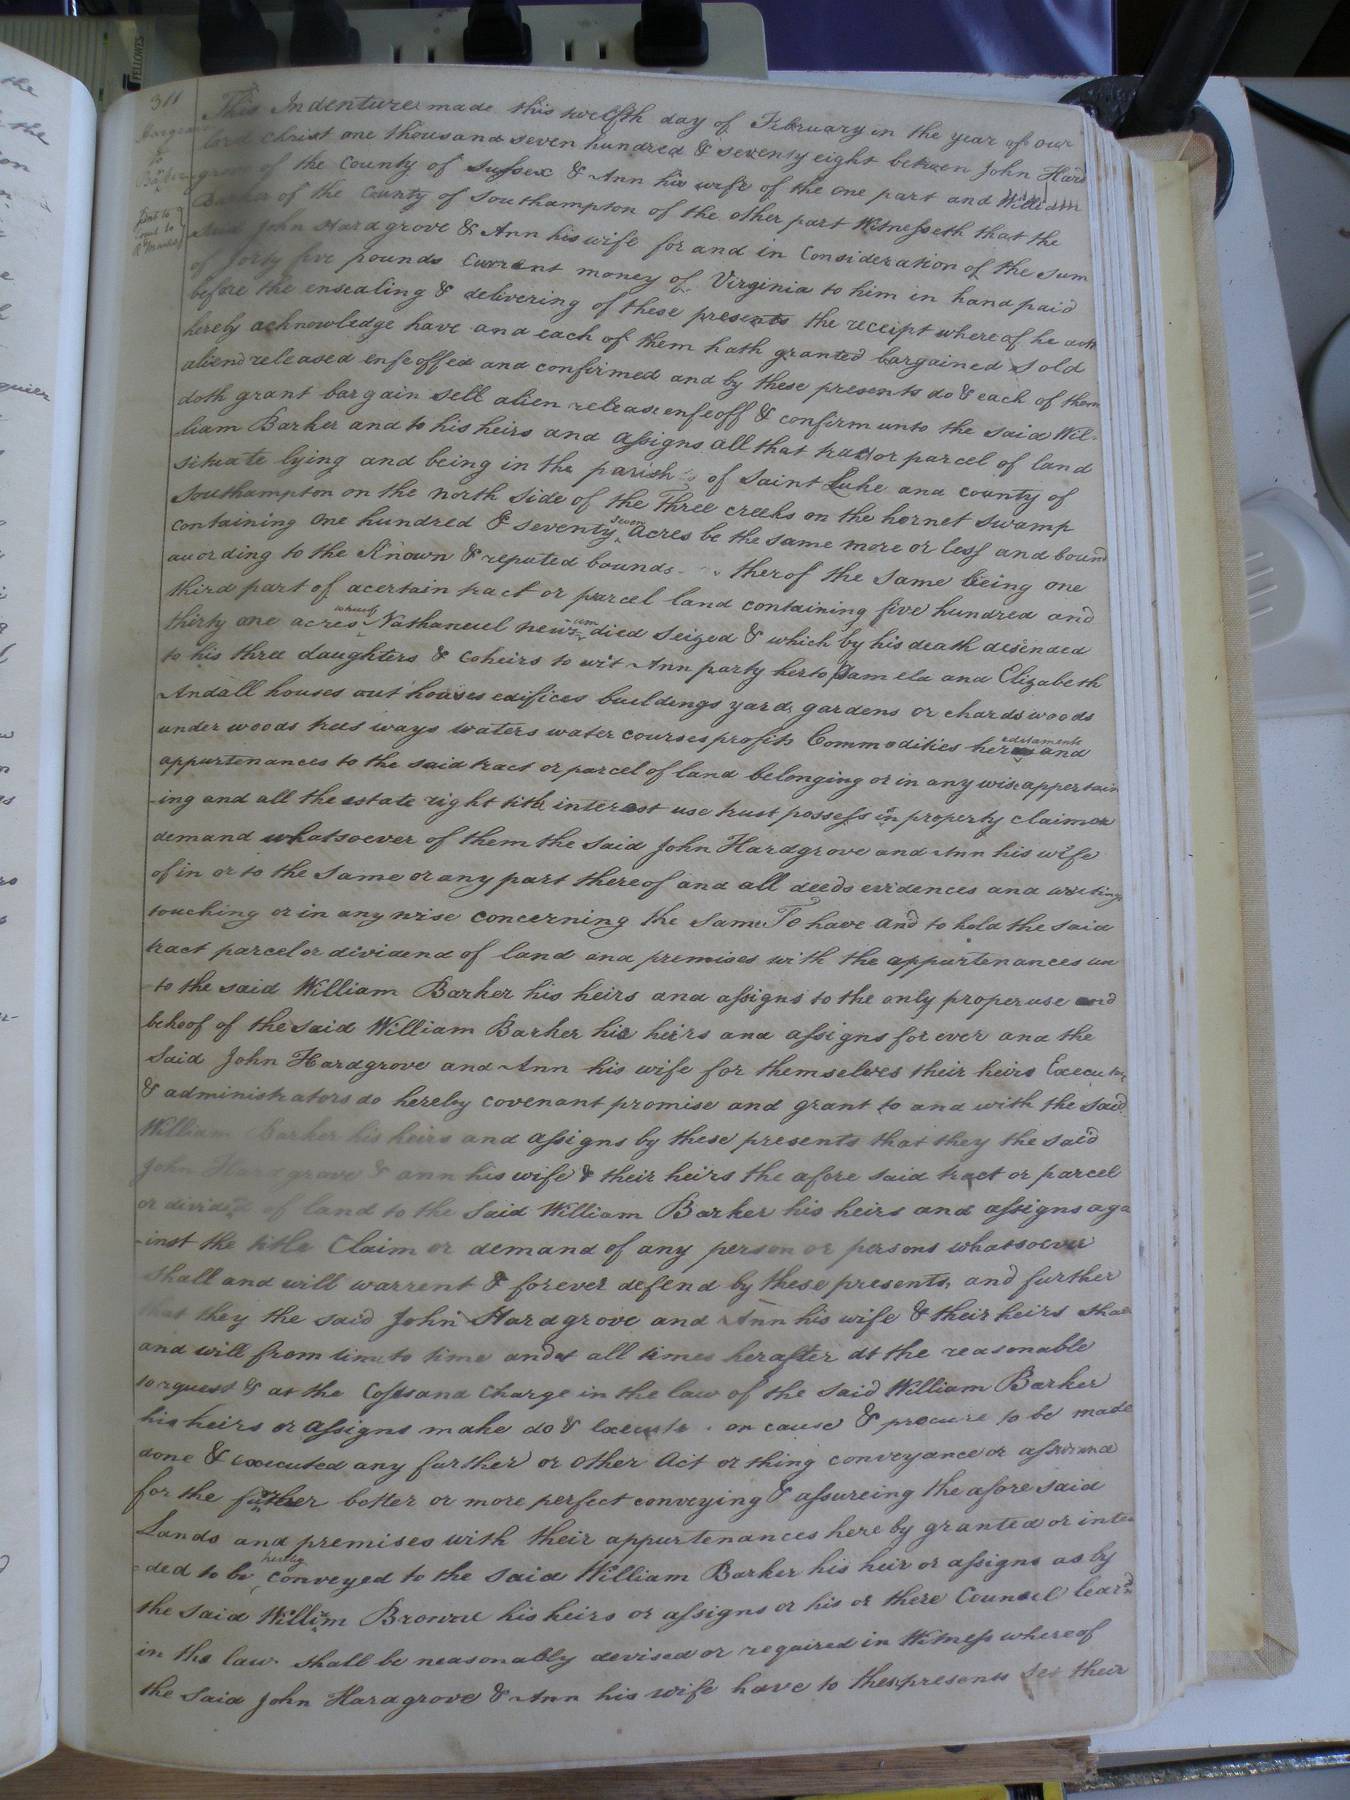 FELLOWES
311
to
This Indenture made this twelfth day of February in the year of our
lord Christ one thousand seven hundred & seventy eight between John Hard
grove of the County of Sussex & Ann his wife of the one part and William
Barker of the County of Southampton of the other part Witnesseth that the
said John Hardgrove & Ann his wife for and in Consideration of the sum
of forty five pounds Current money of Virginia to him in hand paid
before the ensealing & delivering of these presents the receipt whereof he doth
hereby acknowledge have and each of them hath granted bargained sold
aliend released enfeoffed and confirmed and by these presents do & each of them
doth grant bargain sell alien release enfeoff & confirm unto the said Wil-
liam Barker and to his heirs and assigns all that tract or parcel of land
situate lying and being in the parish of Saint Luke and county of
Southampton on the north side of the Three creeks on the hornet swamp
containing One hundred & seventy seven acres be the same more or less and bound
according to the Known & reputed bounds therof the Same being one
third part of acertain tract or parcel land containing five hundred and
thirty one acres whereof Nathaneuel died seized & which by his death desended
to his three daughters & coheirs to wit Ann party herto Pamela and Elizabeth
And all houses out houses edifices buildings yards gardens or chards woods
under woods trees ways waters water courses profits Commodities hereditaments and
appurtenances to the said tract or parcel of land belonging or in any wise appertain
-ing and all the estate right title interest use trust possess in property claim or
demand whatsoever of them the said John Hardgrove and Ann his wife
of in or to the Same or any part thereof and all deeds evidences and writings
touching or in any wise concerning the same To have and to hold the said
tract parcel or dividend of land and premises with the appurtenances un
-to the said William Barker his heirs and assigns to the only proper use and
behoof of the said William Barker his heirs and assigns for ever and the
Said John Hardgrove and Ann his wife for themselves their heirs Executors
& administrators do hereby covenant promise and grant to and with the said
William Barker his heirs and assigns by these presents that they the said
John Hardgrove & ann his wife & their heirs the afore said tract or parcel
or divided of land to the Said William Barker his heirs and assigns aga
-inst the title Claim or demand of any person or persons whatsoever
shall and will warrent & forever defend by these presents, and further
that they the said John Hardgrove and Ann his wife & their heirs shall
and will from time to time and at all times herafter at the reasonable
request & at the Costs and Charge in the law of the said William Barker
his heirs or assigns make do & execute or cause & procure to be made
done & executed any further or other Act or thing conveyance or assurance
for the further better or more perfect conveying & assureing the afore said
Lands and premises with their appurtenances here by granted or inten
-ded to be hereby conveyed to the said William Barker his heir or assigns as by
the said William Browne his heirs or assigns or his or there Council learnd
in the law shall be reasonably devised or required in Witness whereof
the Said John Hardgrove & Ann his wife have to these presents set their